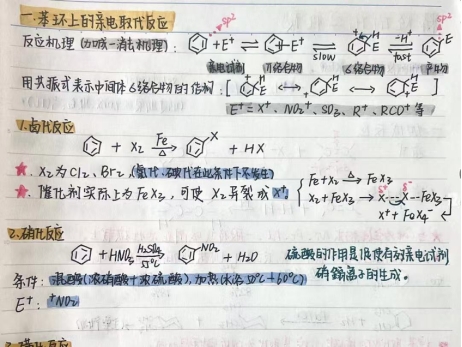 一.苯环上的亲电取代反应
sp² sp²
反应机理(加成-消去机理): +E⁺ ⇌ -E⁺ ⇌ slow H E -H⁺ fast E
亲电试剂 π络合物 σ络合物 产物
用共振式表示中间体σ络合物的结构: [ H E ↔ H E ↔ H E ]
E⁺= X⁺、NO₂⁺、SO₃、R⁺、RCO⁺等
1.卤代反应
+ X₂ Fe → X + HX
★. X₂为Cl₂、Br₂(氟代、碘代在此条件下不发生)
★. 催化剂实际上为FeX₃,可使X₂异裂成X⁺.
Fe+X₂ △→ FeX₃
X₂+FeX₃ → X X--FeX₃
δ⁺ δ⁻
X⁺+FeX₄⁻
2.硝化反应
+HNO₃ H₂SO₄ 55℃ NO₂ + H₂O
硫酸的作用是促使有效亲电试剂
硝鎓离子的生成。
条件: 混酸(浓硝酸+浓硫酸),加热(水浴50℃~60℃)
E⁺: ⁺NO₂